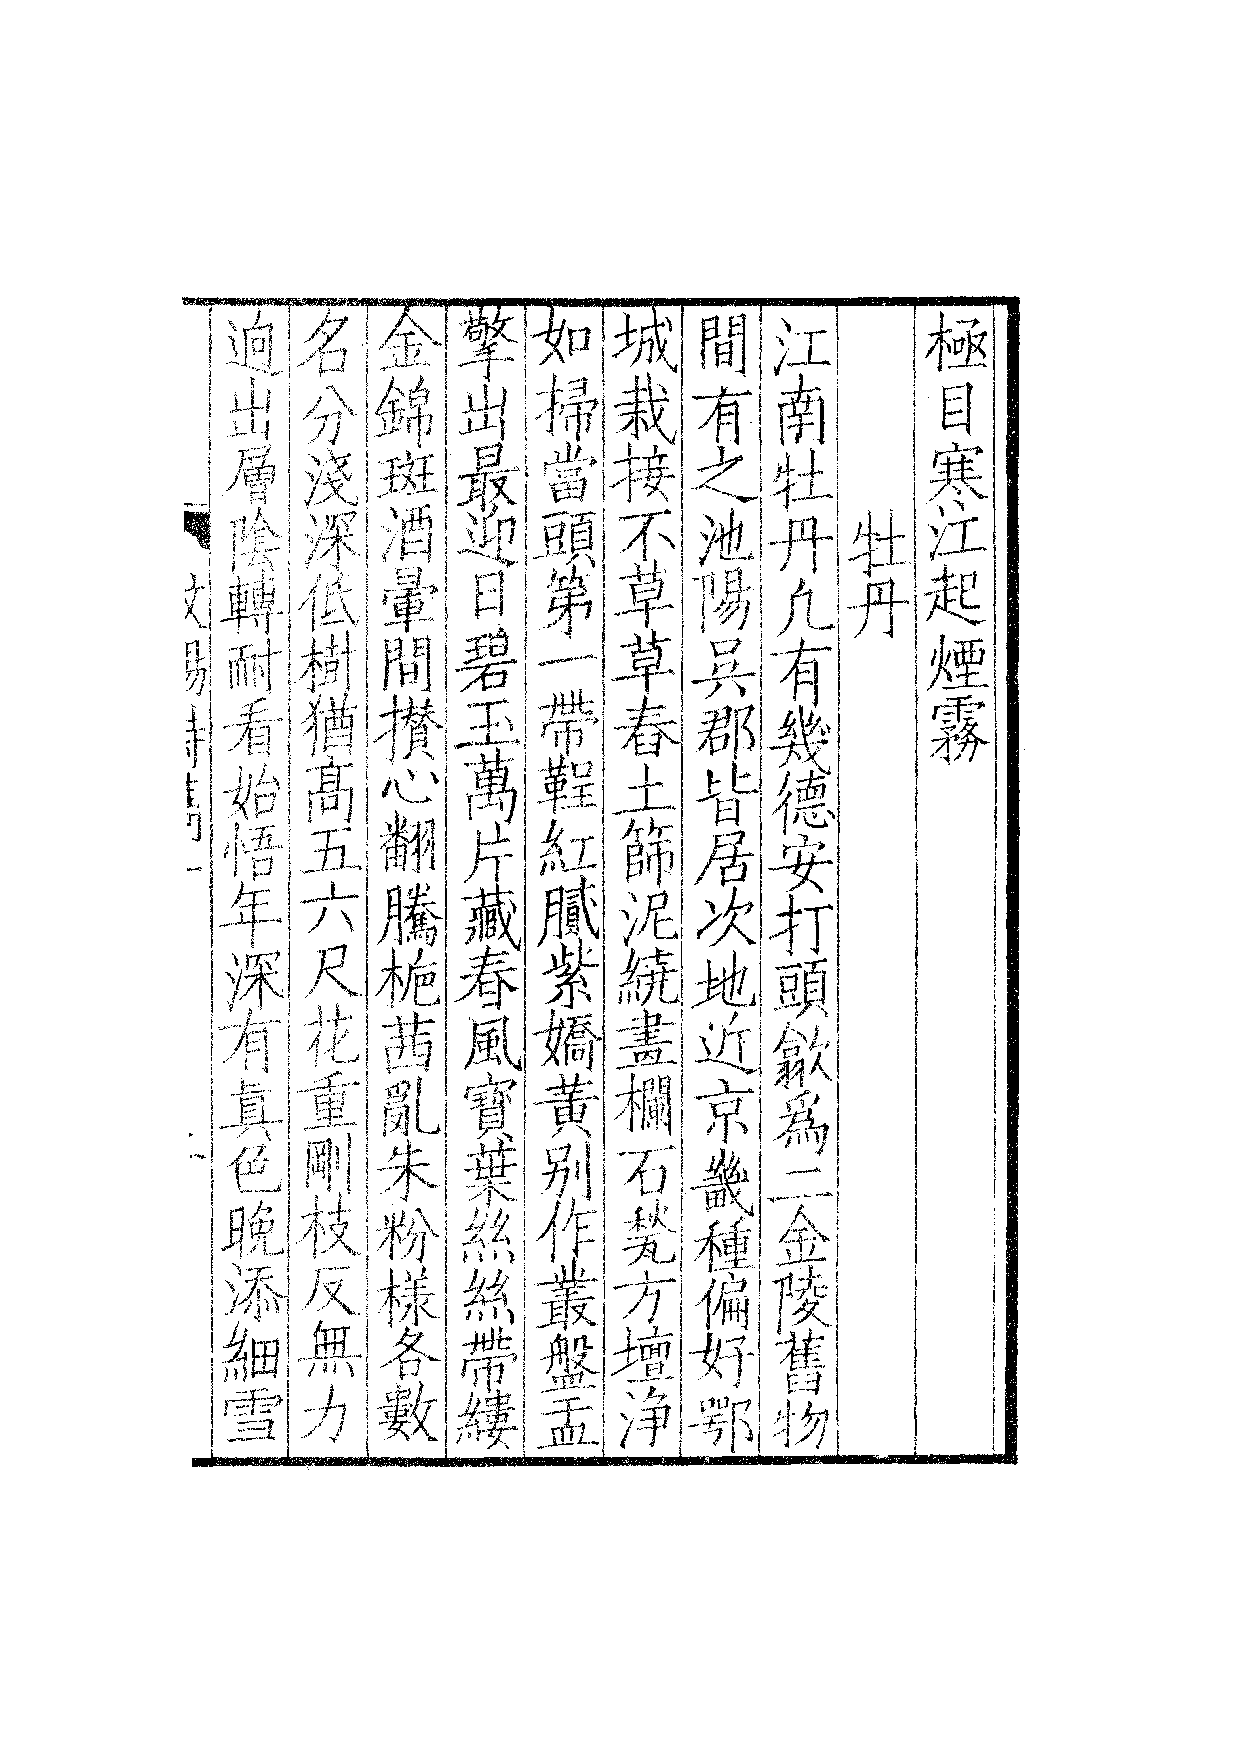 極目寒江起煙霧
牡丹
江南牡丹凢有幾德安打頭歙爲二金陵舊物
間有之池陽吳郡皆居次地近京畿種偏好鄂
城栽接不草草春土篩泥繞畫欄石甃方壇浄
如掃當頭第一帶鞓紅膩紫嬌黄别作叢盤盂
擎出最迎日碧玉萬片藏春風寶葉絲絲帶縷
金錦斑酒暈間攅心翻騰梔茜亂朱粉様各數
名分淺深低樹猶髙五六尺花重剛枝反無力
逈出層陰轉耐看始悟年深有真色晩添細雪